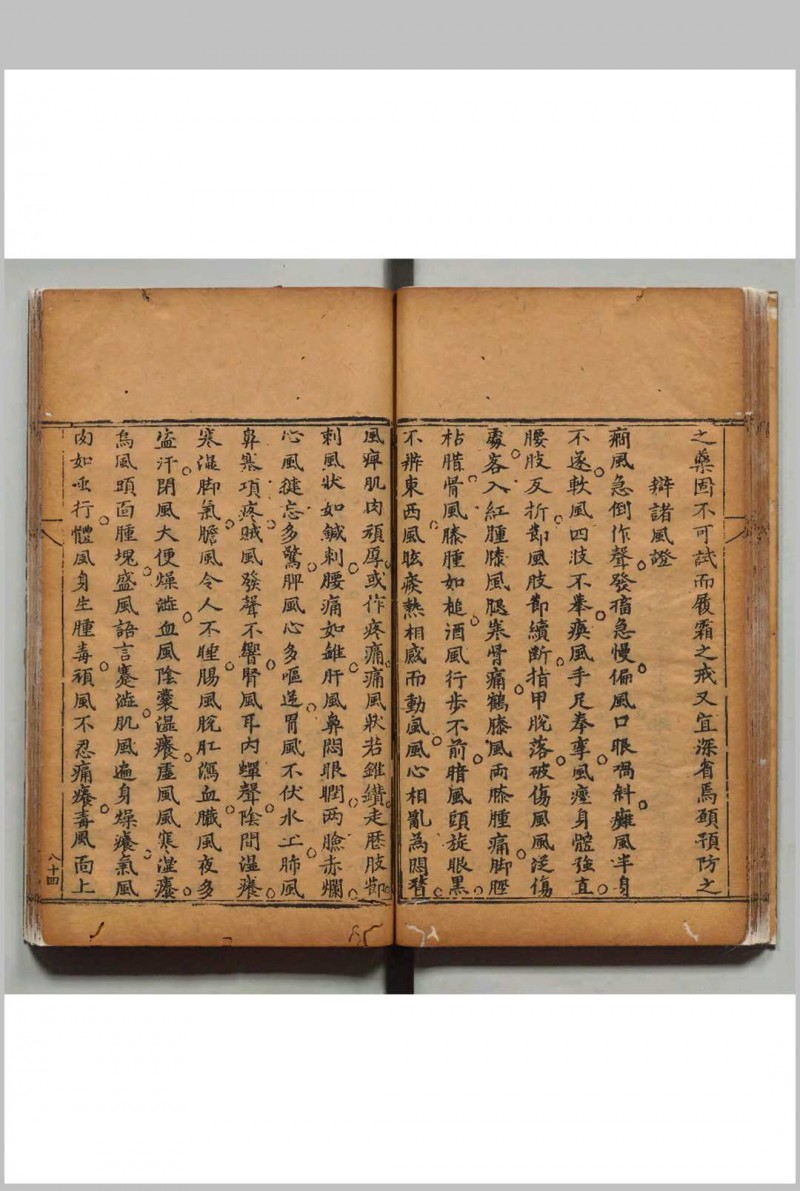 之藥固不可試而履霜之戒又宜深省焉頤預防之
辯諸風證
癇風急倒作聲發搐急慢偏風口眼喎斜癱風半身
不遂軟風四肢不舉瘓風手足奉攣風痙身體強直
腰肢反折節風肢節續斷指甲脫落破傷風風從傷
處客入紅腫膝風腿寒骨痛鶴膝風兩膝腫痛脚脛
枯腊骨風膝腫如槌酒風行步不前暗風頭旋眼黑
不辨東西風眩痰熱相感而動風風心相亂為悶瞀
風痺肌肉頑厚或作疼痛痛風狀若錐鑽走歷肢節
刺風狀如鍼刺腰痛如錐肝風鼻悶眼瞤兩臉赤爛
心風健忘多驚脾風心多嘔逆胃風不伏水土肺風
鼻塞項疼賊風發聲不響腎風耳內蟬聲陰間濕癢
寒濕脚氣膽風令人不睡腸風脫肛瀉血臟風夜多
盜汗閉風大便燥澁血風陰囊濕癢虛風風寒濕癢
烏風頭面腫塊盛風語言蹇澁肌風遍身燥癢氣風
肉如虫行體風身生腫毒頑風不忍痛癢毒風面上
八十四